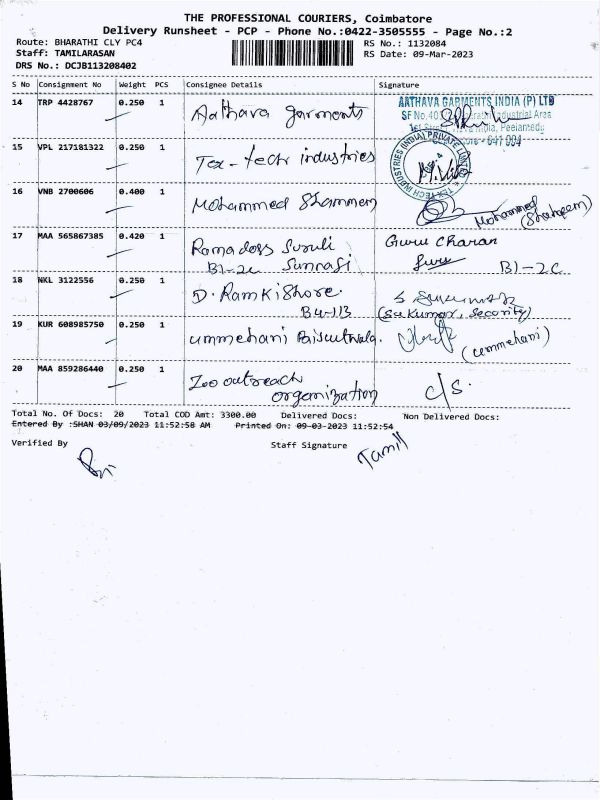 THE PROFESSIONAL COURIERS, Coimbatore
Delivery Runsheet - PCP - Phone No.:0422-3505555 - Page No.:2
Route: BHARATHI CLY PC4
RS No.: 1132084
Staff: TAMILARASAN
RS Date: 09-Mar-2023
DRS No.: DCJB113208402
S No Consignment No Weight PCS Consignee Details Signature
14 TRP 4428767 0.250 1 Aathava garments
AATHAVA GARMENTS INDIA (P) LTD
SF No.
Industrial Area
Peelamedu
641 004
15 VPL 217181322 0.250 1 Tex-tech industries
TEX TECH INDUSTRIES (INDIA) PRIVATE LIMITED
16 VNB 2700606 0.400 1 Mohammed Shammem
Mohammed
(Shaheem)
17 MAA 565867385 0.420 1 Ramadoss Suruli Guru Charan
B1-2C Sunrasi Guru B1-2C
18 NKL 3122556 0.250 1 D. Ramkishore.
B4-113 (Sukumar, Security)
19 KUR 608985750 0.250 1 ummehani Biscutwala. (ummehani)
20 MAA 859286440 0.250 1 Zoo outreach
organization c/s.
Total No. Of Docs: 20 Total COD Amt: 3300.00 Delivered Docs: Non Delivered Docs:
Entered By :SHAN 03/09/2023 11:52:50 AM Printed On: 09-03-2023 11:52:54
Verified By Staff Signature
Tamil